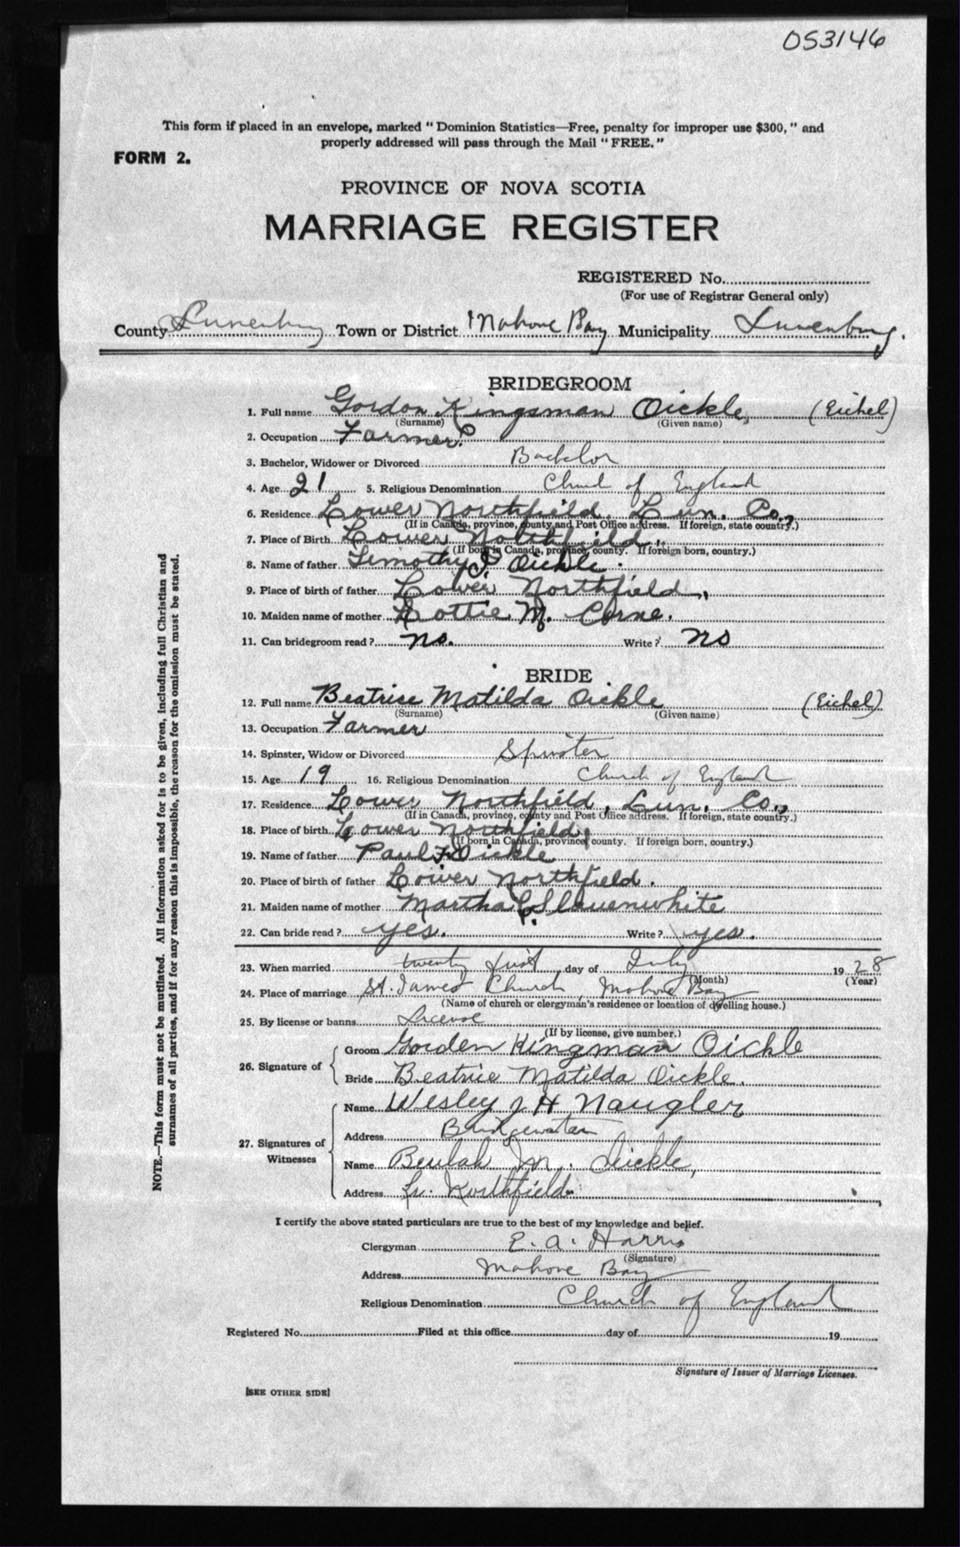 053146
This form if placed in an envelope, marked "Dominion Statistics—Free, penalty for improper use $300," and
properly addressed will pass through the Mail "FREE."
FORM 2.
PROVINCE OF NOVA SCOTIA
MARRIAGE REGISTER
REGISTERED No.
(For use of Registrar General only)
County Lunenburg Town or District Mahone Bay Municipality Lunenburg.
BRIDEGROOM
1. Full name Gordon Kingsman Oickle, (Eichel)
(Surname) (Given name)
2. Occupation Farmer
3. Bachelor, Widower or Divorced Bachelor
4. Age 21 5. Religious Denomination Church of England
6. Residence Lower Northfield, Lun. Co.,
(If in Canada, province, county and Post Office address. If foreign, state country.)
7. Place of Birth Lower Northfield.
(If born in Canada, province, county. If foreign born, country.)
8. Name of father Timothy Oickle.
9. Place of birth of father Lower Northfield,
10. Maiden name of mother Lottie M. Corne.
11. Can bridegroom read? no. Write? no
BRIDE
12. Full name Beatrice Matilda Oickle (Eichel)
(Surname) (Given name)
13. Occupation Farmer
14. Spinster, Widow or Divorced Spinster
15. Age 19 16. Religious Denomination Church of England
17. Residence Lower Northfield, Lun. Co.,
(If in Canada, province, county and Post Office address. If foreign, state country.)
18. Place of birth Lower Northfield,
(If born in Canada, province county. If foreign born, country.)
19. Name of father Paul Oickle
20. Place of birth of father Lower Northfield.
21. Maiden name of mother Martha Slauenwhite
22. Can bride read? yes. Write? yes.
23. When married twenty first day of July 1928
(Month) (Year)
24. Place of marriage St. James Church, Mahone Bay
(Name of church or clergyman's residence or location of dwelling house.)
25. By license or banns License
(If by license, give number.)
26. Signature of
Groom Gorden Kingman Oickle
Bride Beatrice Matilda Oickle.
27. Signatures of
Witnesses
Name Wesley J H Naugler
Address Bridgewater
Name Beulah M. Oickle,
Address Lr. Northfield.
I certify the above stated particulars are true to the best of my knowledge and belief.
Clergyman E. A. Harris
(Signature)
Address Mahone Bay
Religious Denomination Church of England
Registered No. Filed at this office day of 19
Signature of Issuer of Marriage Licenses.
[SEE OTHER SIDE]
NOTE.—This form must not be mutilated. All information asked for is to be given, including full Christian and
surnames of all parties, and if for any reason this is impossible, the reason for the omission must be stated.